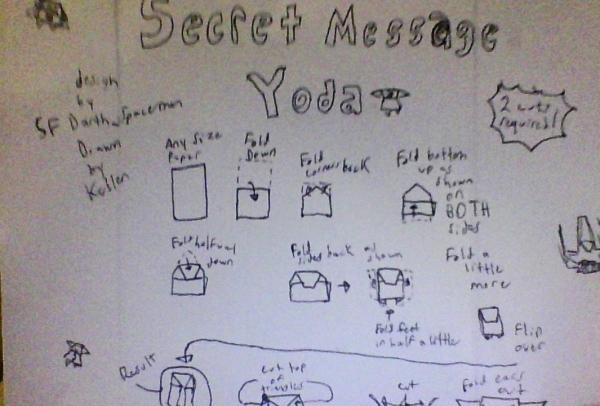 Secret Message
Yoda
design
by
SF Darth Spaceman
Drawn
by
2 cuts
required!
Any Size
Paper
Fold
Down
Fold
corners back
Fold bottom
up as
shown
on
BOTH
sides
Fold halfway
down
Fold
sides back as
shown
Fold feet
in half a little
Fold a
little
more
Flip
over
Result
cut top
of
triangles
cut
Fold ears
out